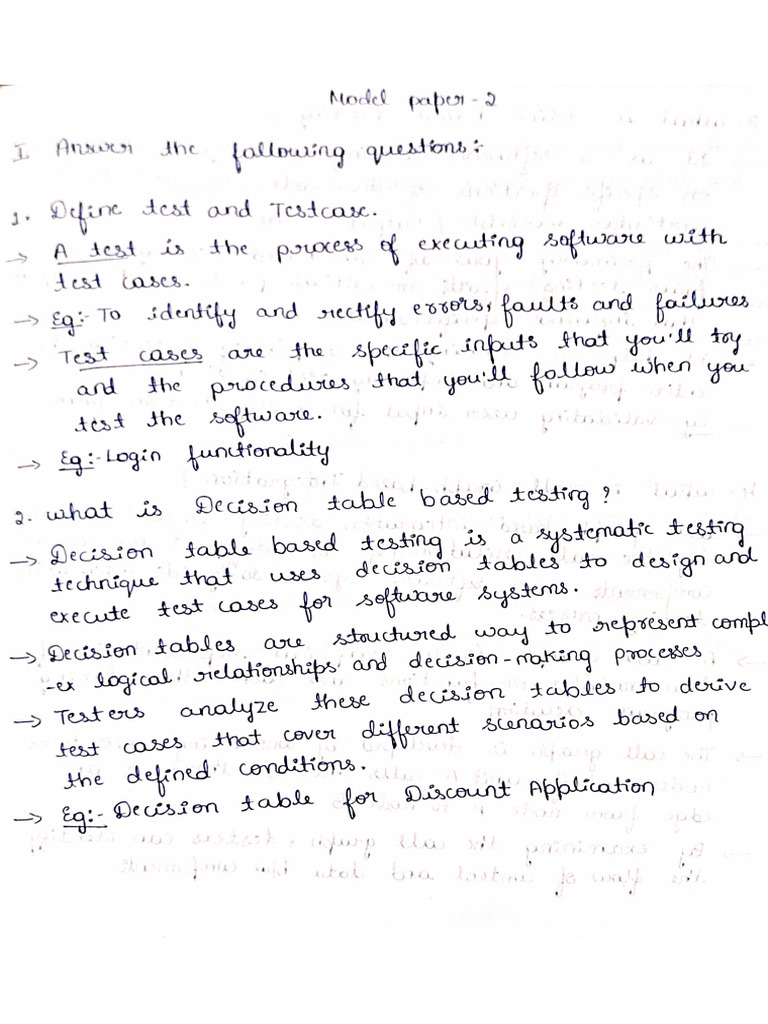 Model paper-2
I Answer the following questions:-
1. Define test and Testcase.
→ A test is the process of executing software with
test cases.
→ Eg:- To identify and rectify errors, faults and failures
→ Test cases are the specific inputs that you'll try
and the procedures that you'll follow when you
test the software.
→ Eg:- Login functionality
2. what is Decision table based testing?
→ Decision table based testing is a systematic testing
technique that uses decision tables to design and
execute test cases for software systems.
→ Decision tables are structured way to represent compl
-ex logical relationships and decision-making processes
→ Testers analyze these decision tables to derive
test cases that cover different scenarios based on
the defined conditions.
→ Eg:- Decision table for Discount Application